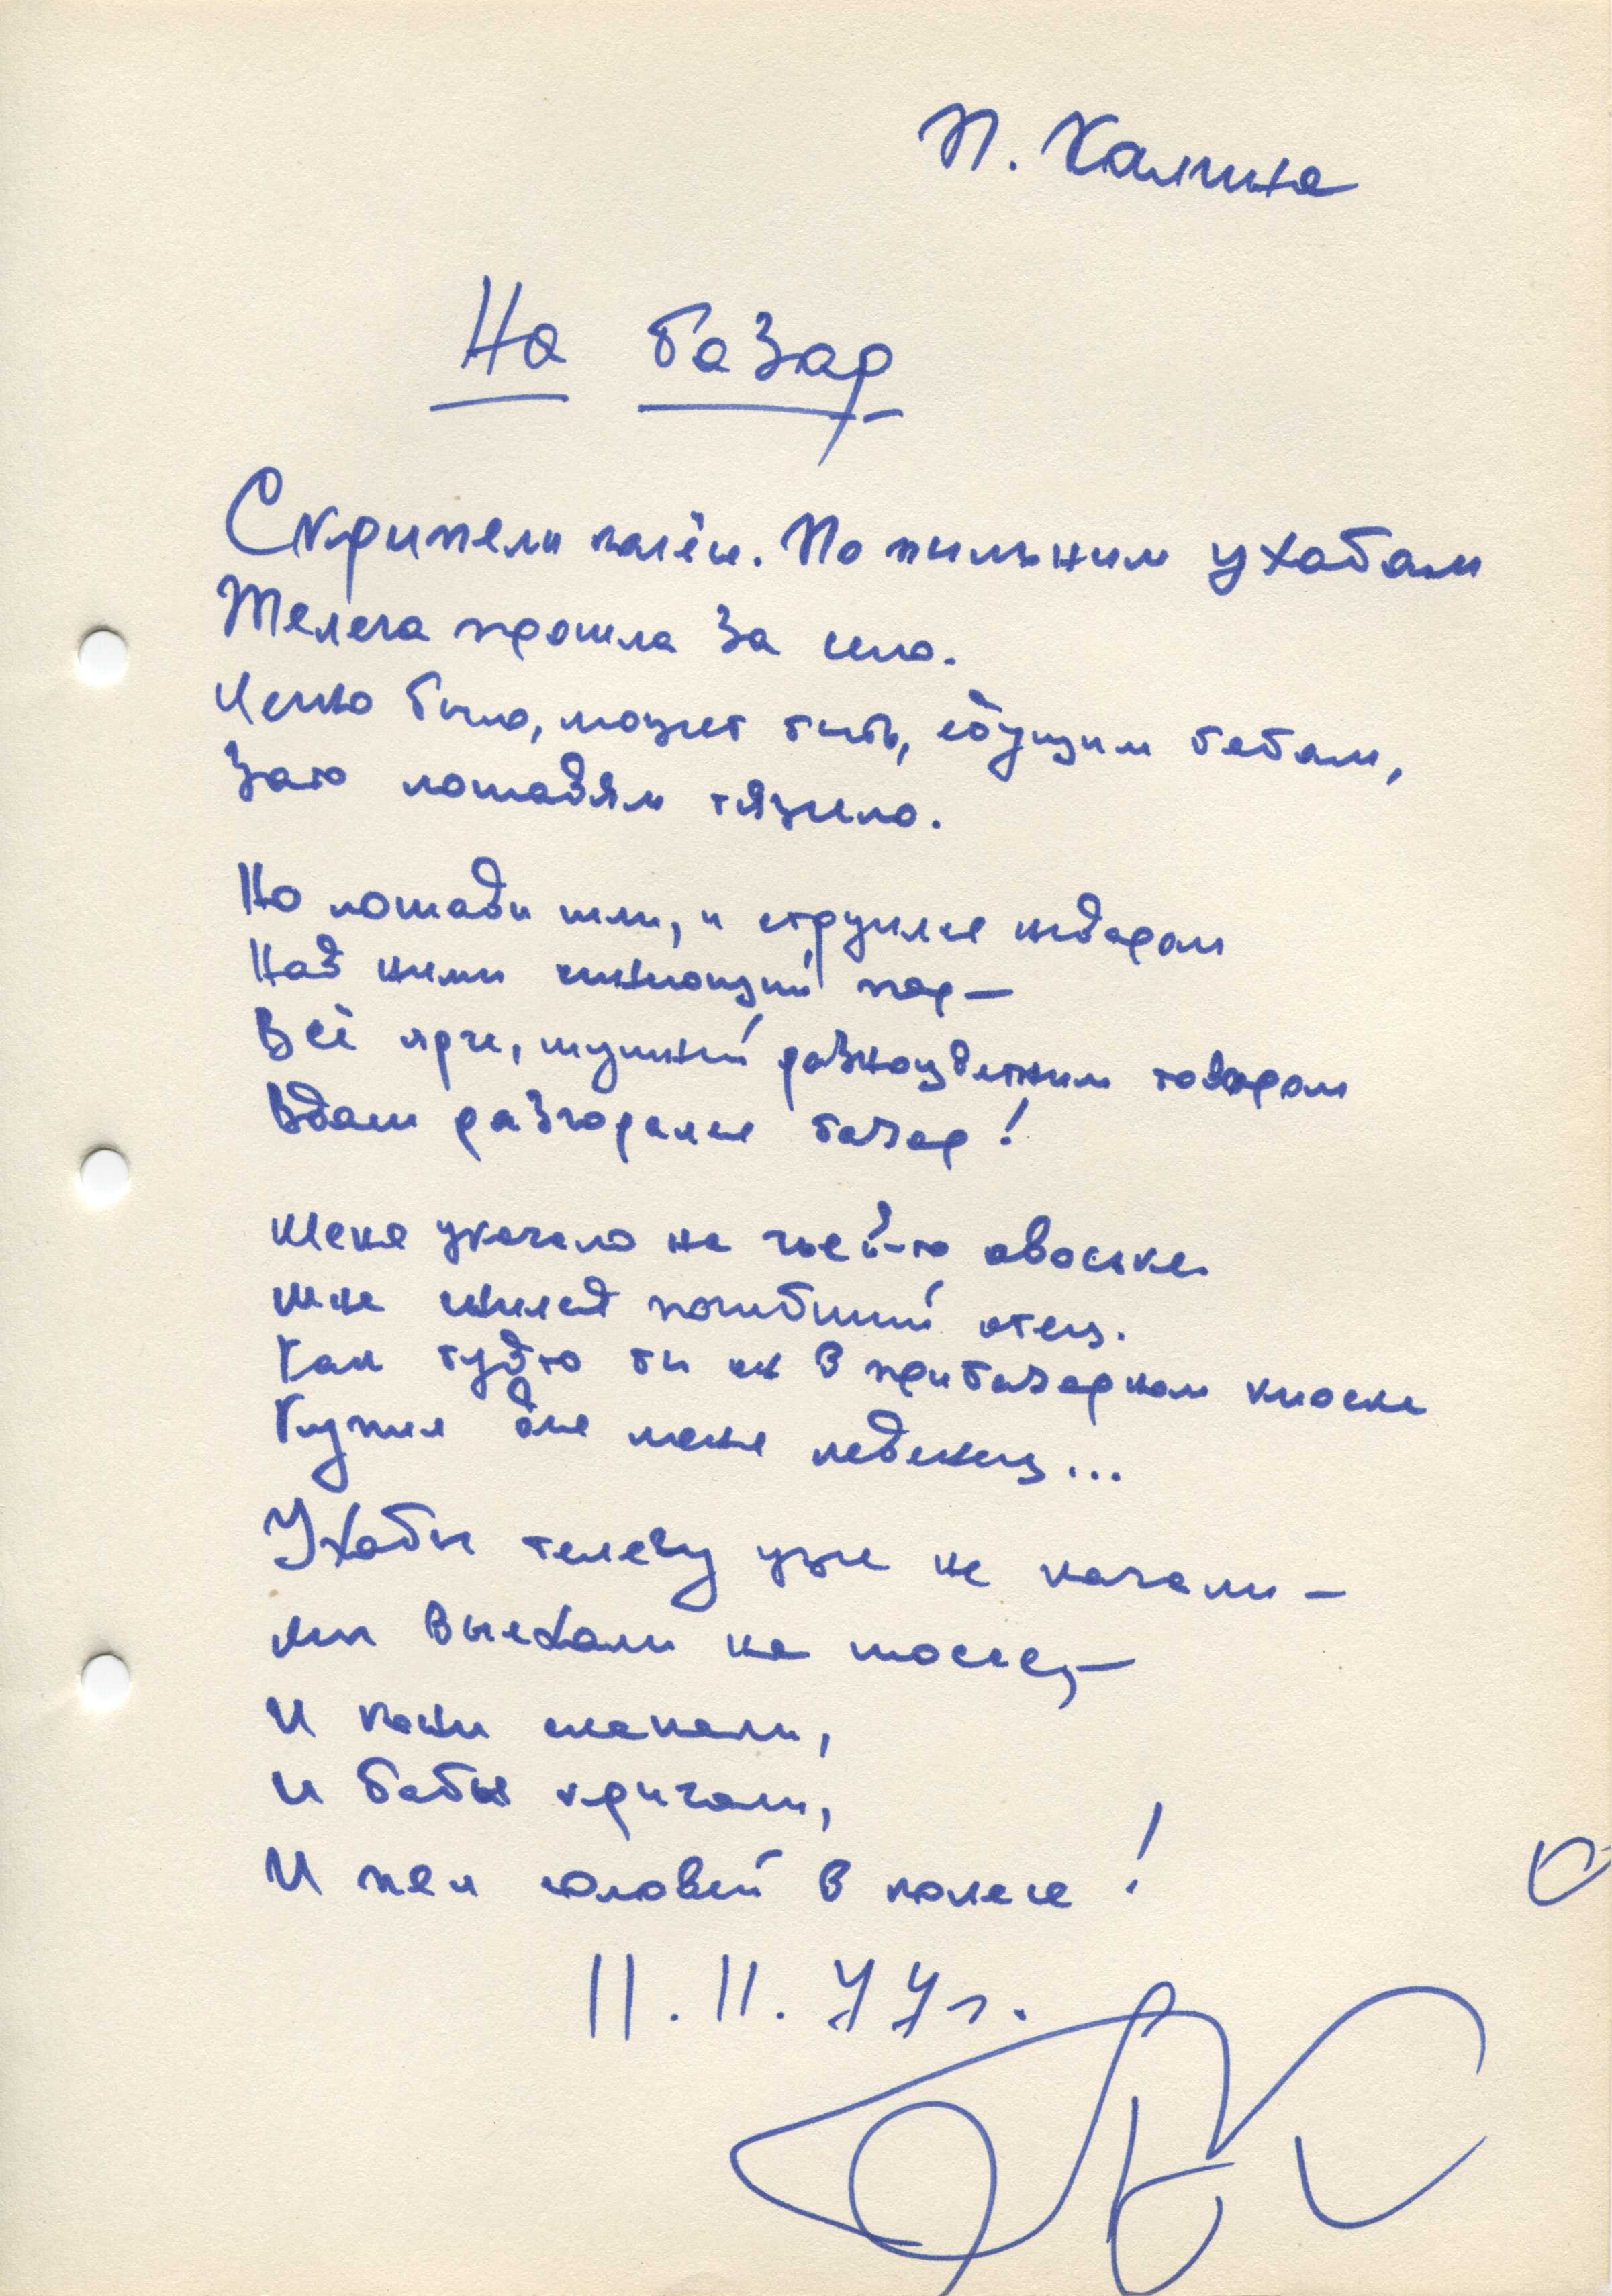 П. Калина
На базар
Скрипели колёса. По пыльным ухабам
Телега прошла за село.
Легко было, может быть, едущим бабам,
Зато лошадям тяжело.
Но лошади шли, и струился недаром
Над ними клубящий пар —
Всё ярче, шумней разноцветным товаром
Вдали разгорался базар!
Меня укачало на чьей-то авоське.
Мне снился погибший отец.
Как будто бы он в прибазарном киоске
Купил для меня леденец...
Ухабы телегу уже не качали —
Мы выехали на шоссе, —
И кони скакали,
И бабы кричали,
И пел соловей в колесе!
11. 11. 77 г.